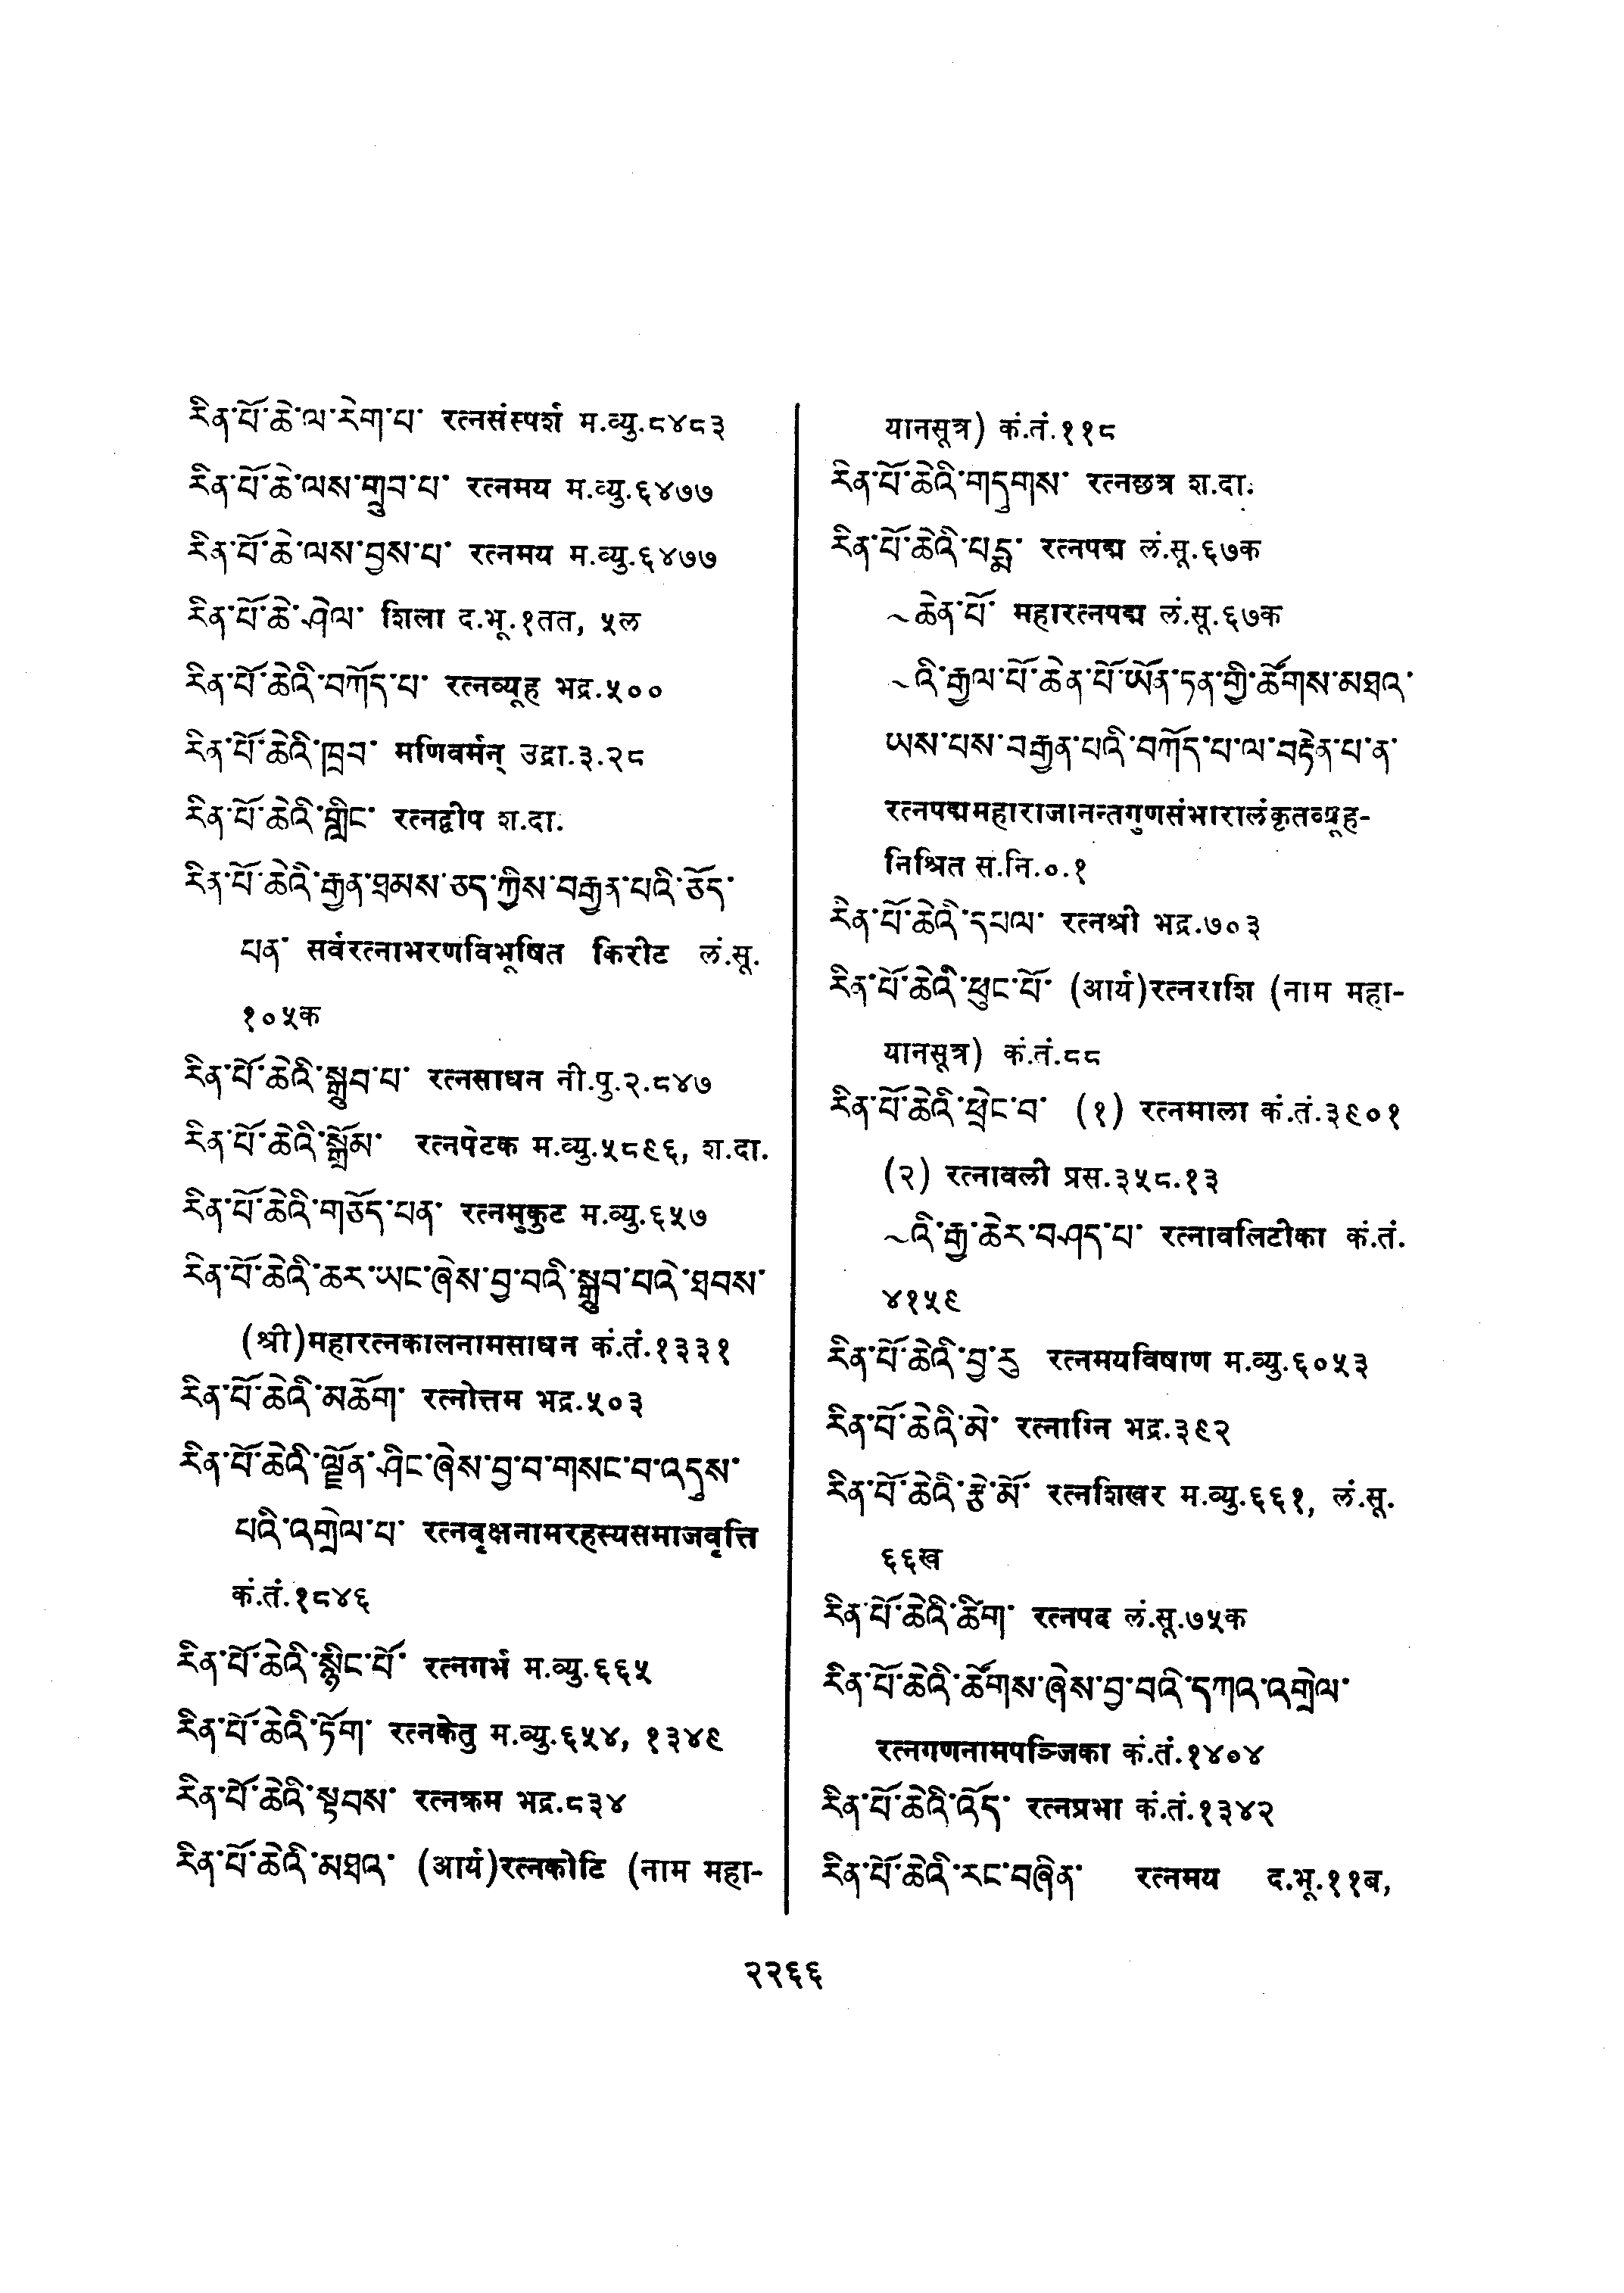 རིན་པོ་ཆེ་ལ་རེག་པ་ रत्नसंस्पर्श म.व्यु.८४८३
རིན་པོ་ཆེ་ལས་གྲུབ་པ་ रत्नमय म.व्यु.६४७७
རིན་པོ་ཆེ་ལས་བྱས་པ་ रत्नमय म.व्यु.६४७७
རིན་པོ་ཆེ་ཤེལ་ शिला द.भू.१तत, ५ल
རིན་པོ་ཆེའི་བཀོད་པ་ रत्नव्यूह भद्र.५००
རིན་པོ་ཆེའི་ཁྲབ་ मणिवर्मन् उद्रा.३.२८
རིན་པོ་ཆེའི་གླིང་ रत्नद्वीप श.दा.
རིན་པོ་ཆེའི་རྒྱན་ཐམས་ཅད་ཀྱིས་བརྒྱན་པའི་ཅོད་
པན་ सर्वरत्नाभरणविभूषित किरीट लं.सू.
१०५क
རིན་པོ་ཆེའི་སྒྲུབ་པ་ रत्नसाधन नी.पु.२.८४७
རིན་པོ་ཆེའི་སྒྲོམ་ रत्नपेटक म.व्यु.५८९६, श.दा.
རིན་པོ་ཆེའི་གཅོད་པན་ रत्नमुकुट म.व्यु.६५७
རིན་པོ་ཆེའི་ཆར་ཡང་ཞེས་བྱ་བའི་སྒྲུབ་པའེ་ཐབས་
(श्री)महारत्नकालनामसाधन कं.तं.१३३१
རིན་པོ་ཆེའི་མཆོག་ रत्नोत्तम भद्र.५०३
རིན་པོ་ཆེའི་ལྗོན་ཤིང་ཞེས་བྱ་བ་གསང་བ་འདུས་
པའི་འགྲེལ་པ་ रत्नवृक्षनामरहस्यसमाजवृत्ति
कं.तं.१८४६
རིན་པོ་ཆེའི་སྙིང་པོ་ रत्नगर्भ म.व्यु.६६५
རིན་པོ་ཆེའི་ཏོག་ रत्नकेतु म.व्यु.६५४, १३४९
རིན་པོ་ཆེའི་སྟབས་ रत्नक्रम भद्र.८३४
རིན་པོ་ཆེའི་མཐའ་ (आर्य)रत्नकोटि (नाम महा-
यानसूत्र) कं.तं.११८
རིན་པོ་ཆེའི་གདུགས་ रत्नछत्र श.दा.
རིན་པོ་ཆེའི་པདྨ་ रत्नपद्म लं.सू.६७क
~ཆེན་པོ་ महारत्नपद्म लं.सू.६७क
~འི་རྒྱལ་པོ་ཆེན་པོ་ཡོན་ཏན་གྱི་ཚོགས་མཐའ་
ཡས་པས་བརྒྱན་པའི་བཀོད་པ་ལ་བརྟེན་པ་ན་
रत्नपद्ममहाराजानन्तगुणसंभारालंकृतव्यूह-
निश्रित स.नि.०.१
རིན་པོ་ཆེའི་དཔལ་ रत्नश्री भद्र.७०३
རིན་པོ་ཆེའི་ཕུང་པོ་ (आर्य)रत्नराशि (नाम महा-
यानसूत्र) कं.तं.८८
རིན་པོ་ཆེའི་ཕྲེང་བ་ (१) रत्नमाला कं.तं.३९०१
(२) रत्नावली प्रस.३५८.१३
~འི་རྒྱ་ཆེར་བཤད་པ་ रत्नावलिटीका कं.तं.
४१५९
རིན་པོ་ཆེའི་བྱ་རུ रत्नमयविषाण म.व्यु.६०५३
རིན་པོ་ཆེའི་མེ་ रत्नाग्नि भद्र.३९२
རིན་པོ་ཆེའི་རྩེ་མོ་ रत्नशिखर म.व्यु.६६१, लं.सू.
६६ख
རིན་པོ་ཆེའི་ཚིག་ रत्नपद लं.सू.७५क
རིན་པོ་ཆེའི་ཚོགས་ཞེས་བྱ་བའི་དཀའ་འགྲེལ་
रत्नगणनामपञ्जिका कं.तं.१४०४
རིན་པོ་ཆེའི་འོད་ रत्नप्रभा कं.तं.१३४२
རིན་པོ་ཆེའི་རང་བཞིན་ रत्नमय द.भू.११ब,
२२६६